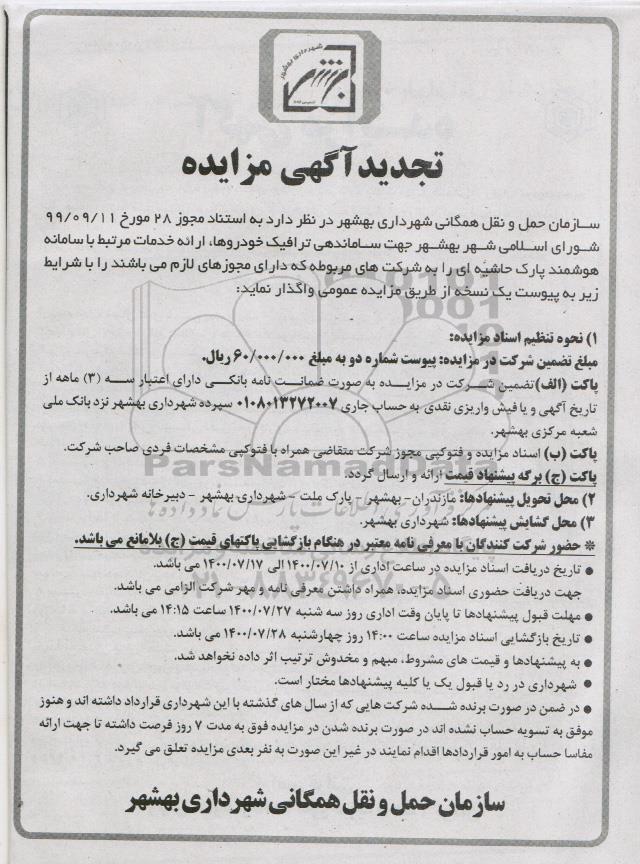 شهرداری بهشهر
تجدید آگهی مزایده
سازمان حمل و نقل همگانی شهرداری بهشهر در نظر دارد به استناد مجوز ۲۸ مورخ ۹۹/۰۹/۱۱
شورای اسلامی شهر بهشهر جهت ساماندهی ترافیک خودروها، ارائه خدمات مرتبط با سامانه
هوشمند پارک حاشیه ای را به شرکت های مربوطه که دارای مجوزهای لازم می باشند را با شرایط
زیر به پیوست یک نسخه از طریق مزایده عمومی واگذار نماید:
۱) نحوه تنظیم اسناد مزایده:
مبلغ تضمین شرکت در مزایده: پیوست شماره دو به مبلغ ۶۰/۰۰۰/۰۰۰ ریال.
پاکت (الف) تضمین شرکت در مزایده به صورت ضمانت نامه بانکی دارای اعتبار سه (۳) ماهه از
تاریخ آگهی و یا فیش واریزی نقدی به حساب جاری ۰۱۰۸۰۱۳۲۷۲۰۰۷ سپرده شهرداری بهشهر نزد بانک ملی
شعبه مرکزی بهشهر.
پاکت (ب) اسناد مزایده و فتوکپی مجوز شرکت متقاضی همراه با فتوکپی مشخصات فردی صاحب شرکت.
پاکت (ج) برگه پیشنهاد قیمت ارائه و ارسال گردد.
ParsNamadData
۲) محل تحویل پیشنهادها: مازندران- بهشهر – پارک ملت – شهرداری بهشهر - دبیرخانه شهرداری.
۳) محل گشایش پیشنهادها: شهرداری بهشهر.
* حضور شرکت کنندگان با معرفی نامه معتبر در هنگام بازگشایی پاکتهای قیمت (ج) بلامانع می باشد.
● تاریخ دریافت اسناد مزایده در ساعت اداری از ۱۴۰۰/۰۷/۱۰ الی ۱۴۰۰/۰۷/۱۷ می باشد.
جهت دریافت حضوری اسناد مزایده، همراه داشتن معرفی نامه و مهر شرکت الزامی می باشد.
۰۲۱-۸۸۳۴۹۶۷۰-۵
● مهلت قبول پیشنهادها تا پایان وقت اداری روز سه شنبه ۱۴۰۰/۰۷/۲۷ ساعت ۱۴:۱۵ می باشد.
● تاریخ بازگشایی اسناد مزایده ساعت ۱۴:۰۰ روز چهارشنبه ۱۴۰۰/۰۷/۲۸ می باشد.
● به پیشنهادها و قیمت های مشروط، مبهم و مخدوش ترتیب اثر داده نخواهد شد.
● شهرداری در رد یا قبول یک یا کلیه پیشنهادها مختار است.
● در ضمن در صورت برنده شده شرکت هایی که از سال های گذشته با این شهرداری قرارداد داشته اند و هنوز
موفق به تسویه حساب نشده اند در صورت برنده شدن در مزایده فوق به مدت ۷ روز فرصت داشته تا جهت ارائه
مفاسا حساب به امور قراردادها اقدام نمایند در غیر این صورت به نفر بعدی مزایده تعلق می گیرد.
سازمان حمل و نقل همگانی شهرداری بهشهر